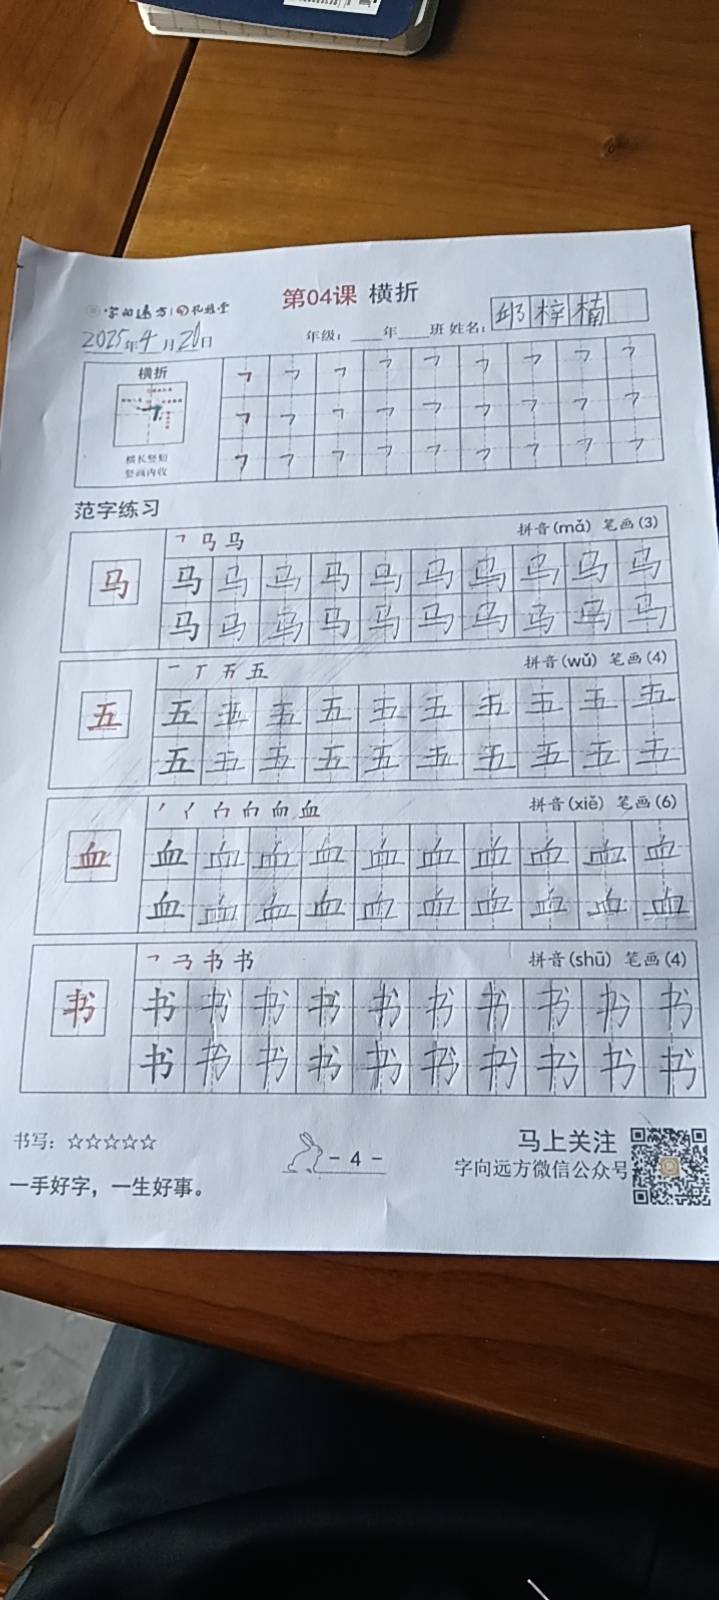 字向远方
第04课 横折
2025年4月20日
年级：____年____班 姓名：邱梓楠
横折
横长竖短
竖画内收
㇕ ㇕ ㇕ ㇕ ㇕ ㇕ ㇕ ㇕ ㇕
㇕ ㇕ ㇕ ㇕ ㇕ ㇕ ㇕ ㇕ ㇕
㇕ ㇕ ㇕ ㇕ ㇕ ㇕ ㇕ ㇕ ㇕
范字练习
拼音(mǎ) 笔画(3)
马
马 马 马 马 马 马 马 马 马 马
马 马 马 马 马 马 马 马 马 马
拼音(wǔ) 笔画(4)
五
五 五 五 五 五 五 五 五 五 五
五 五 五 五 五 五 五 五 五 五
拼音(xiě) 笔画(6)
血
血 血 血 血 血 血 血 血 血 血
血 血 血 血 血 血 血 血 血 血
拼音(shū) 笔画(4)
书
书 书 书 书 书 书 书 书 书 书
书 书 书 书 书 书 书 书 书 书
书写：☆☆☆☆☆
- 4 -
马上关注
字向远方微信公众号
一手好字，一生好事。